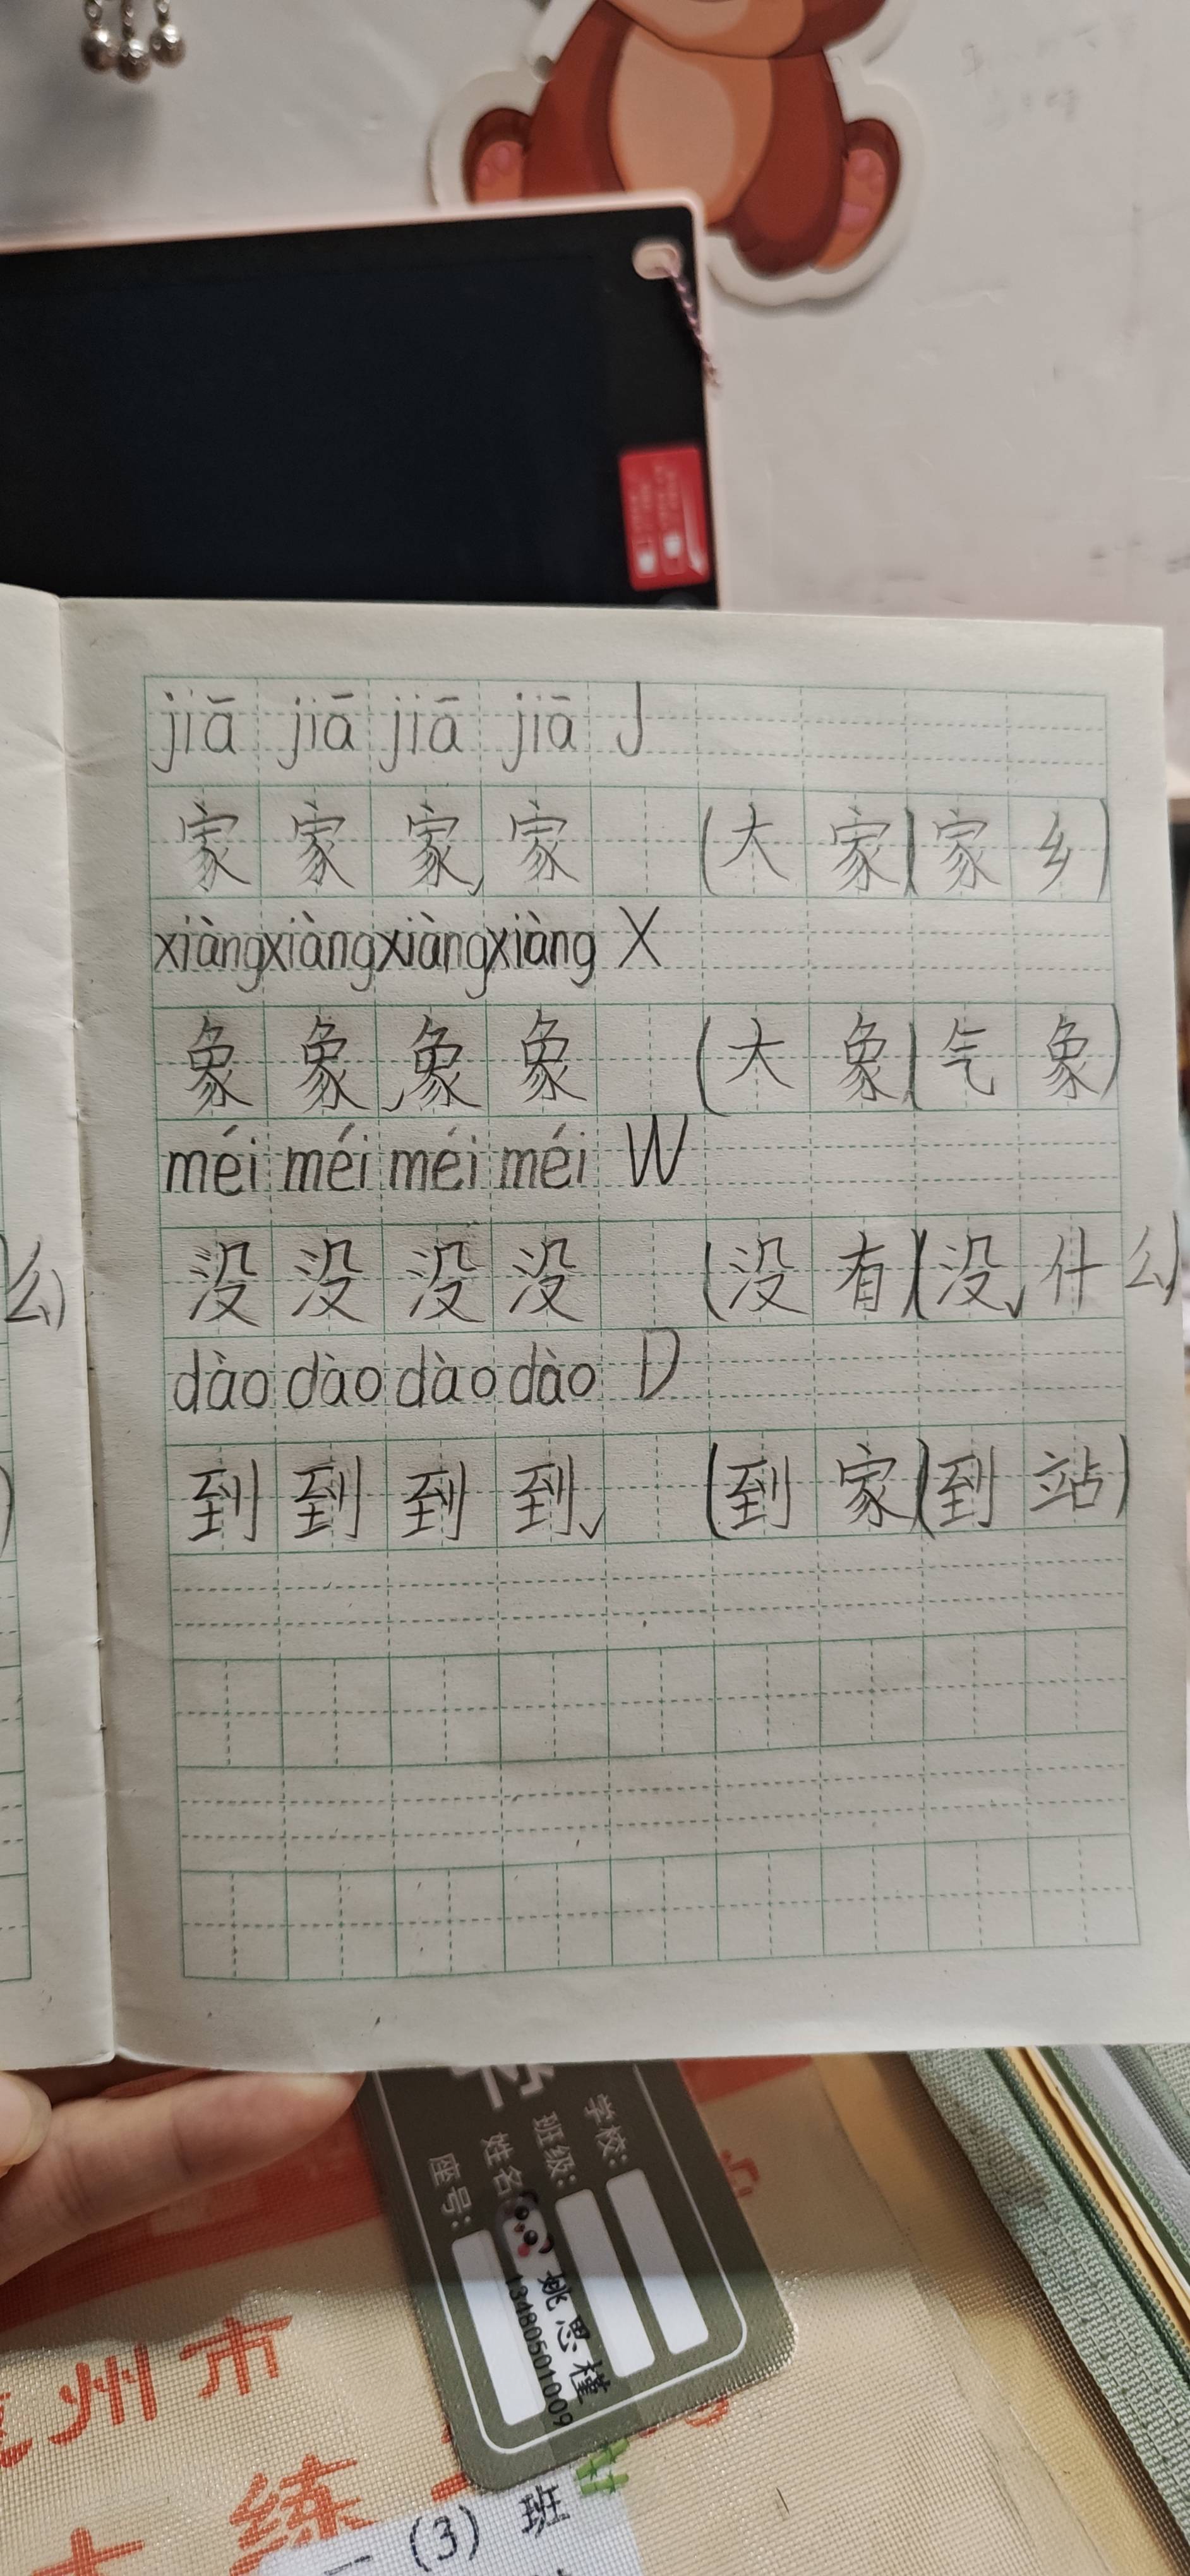 jiā jiā jiā jiā J
家 家 家 家 (大 家)(家 乡)
xiàng xiàng xiàng xiàng X
象 象 象 象 (大 象)(气 象)
méi méi méi méi W
没 没 没 没 (没 有)(没 什 么)
dào dào dào dào D
到 到 到 到 (到 家)(到 站)
么)
)
学校:
班级:
姓名
座号:
姚思槿
13480501009
州市
练
一(3)班